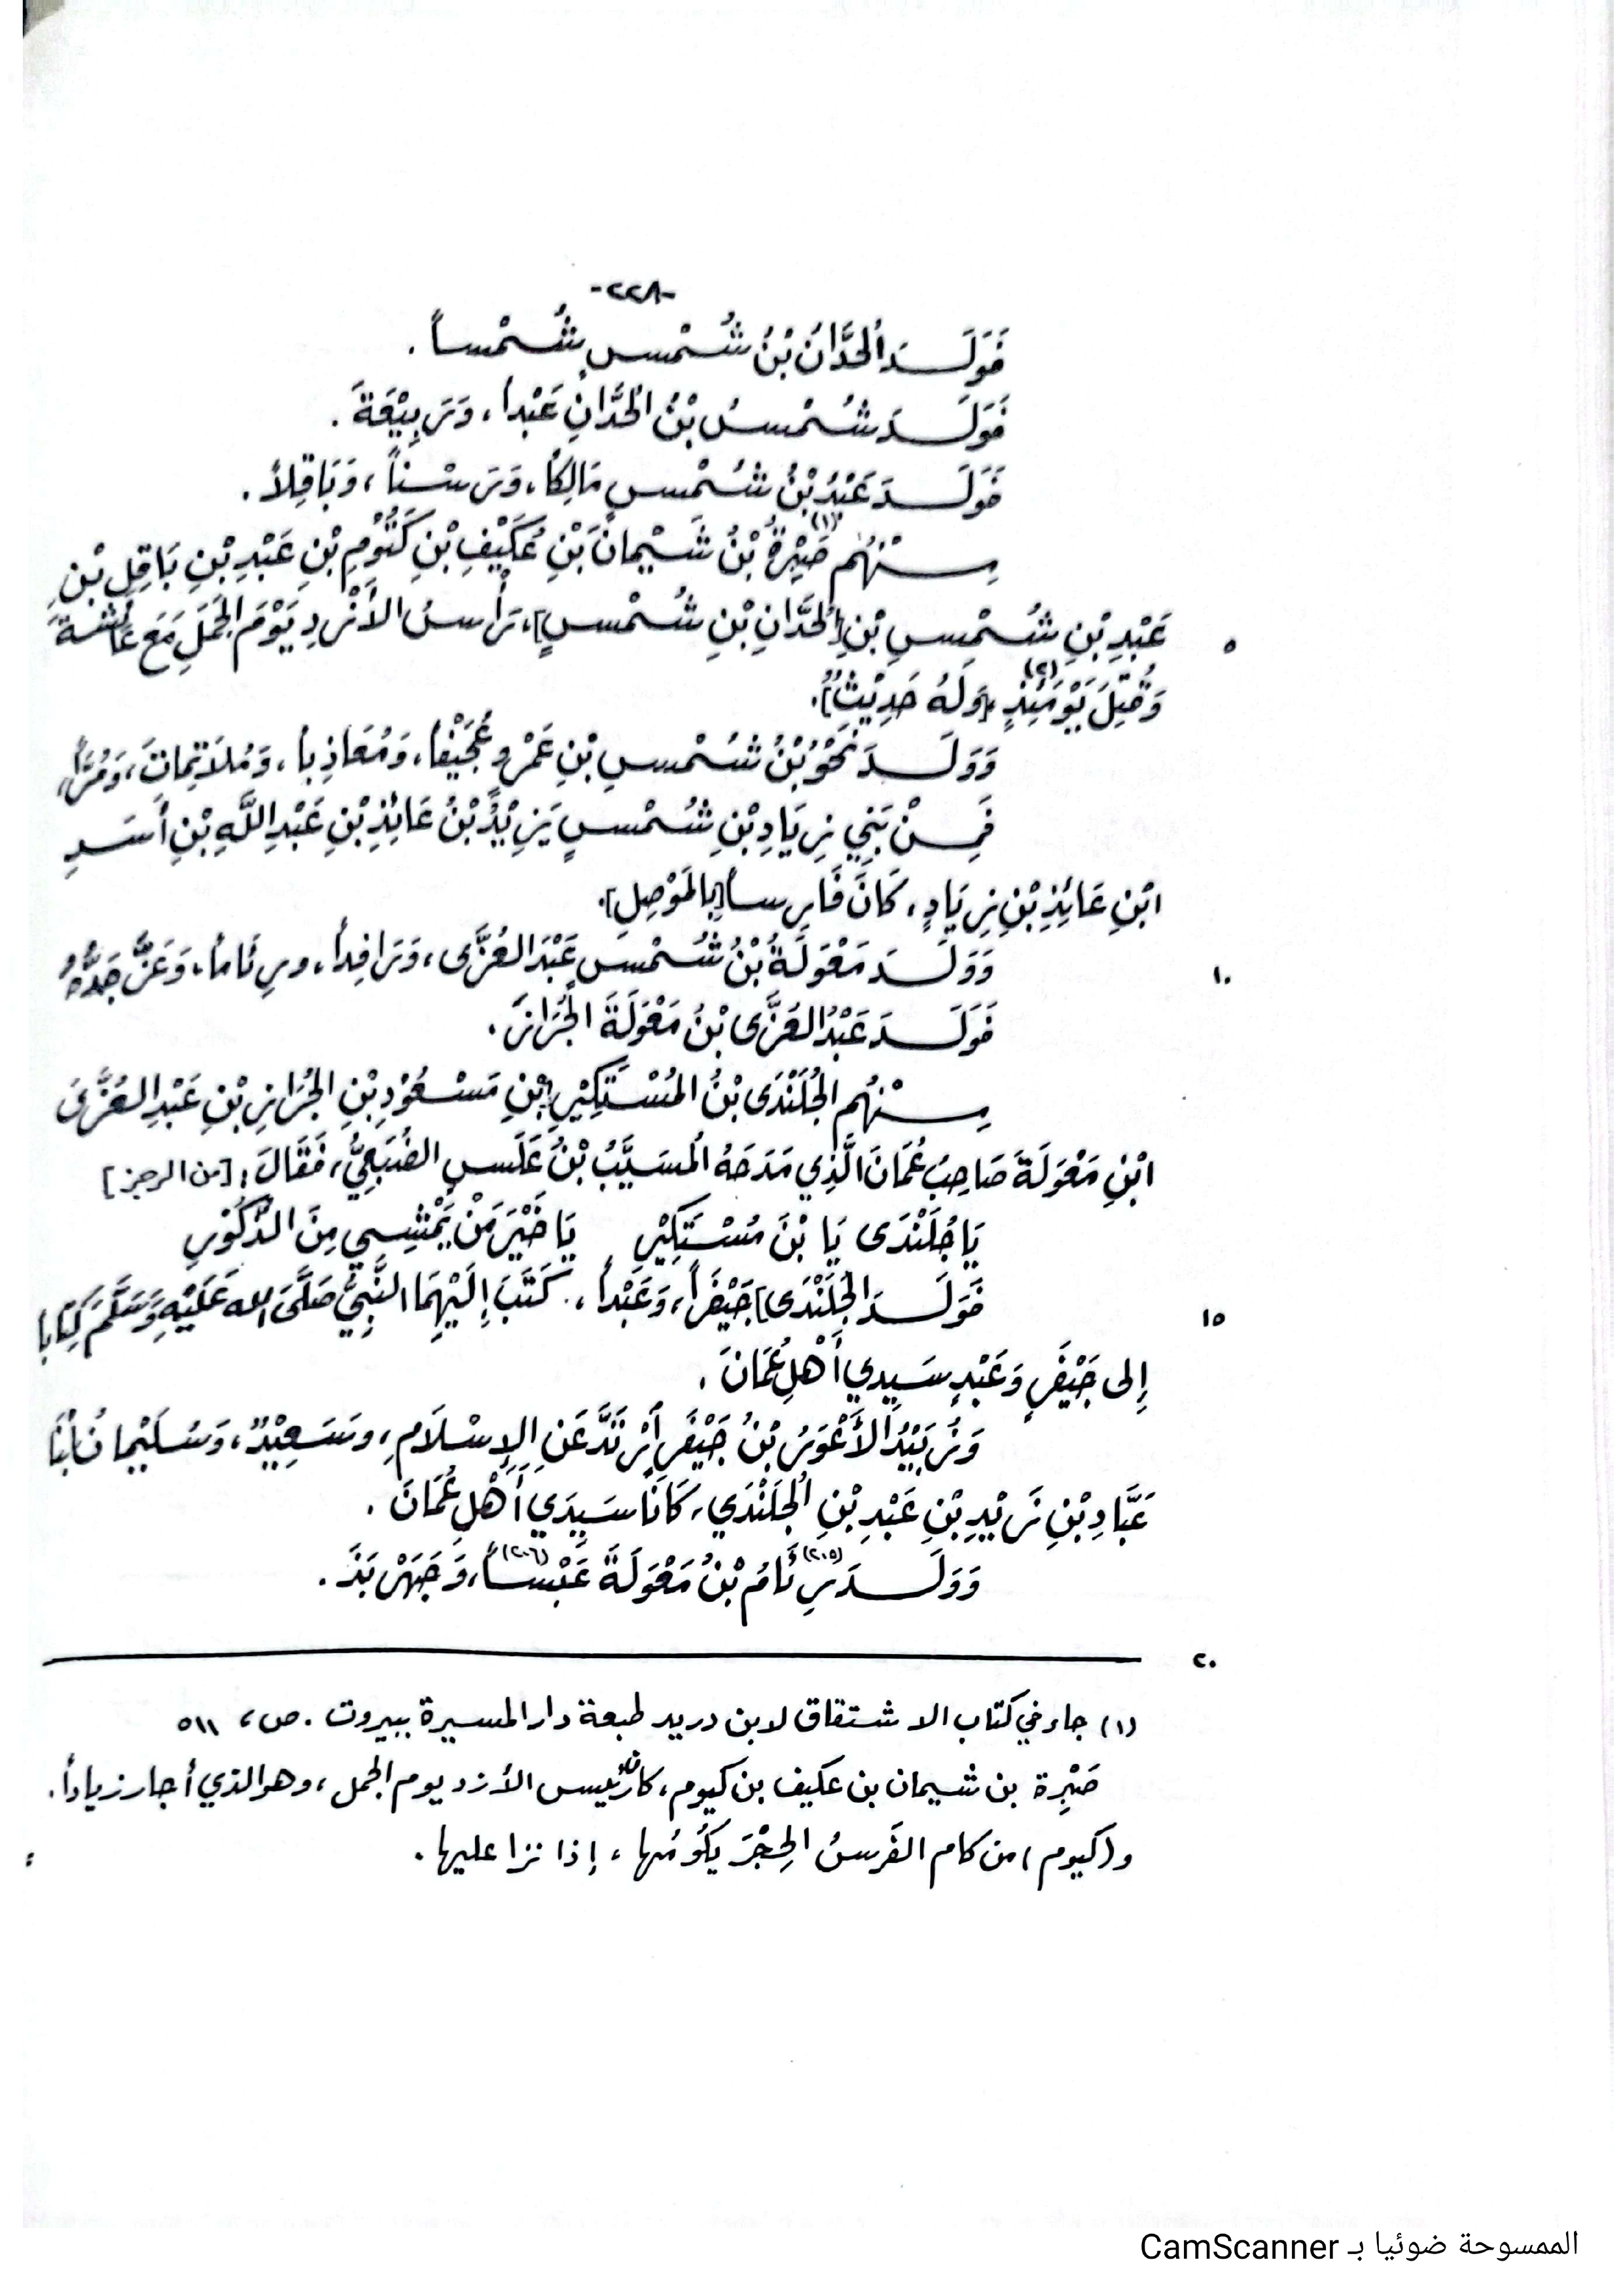 -٢٢٨-
فَوَلَـــدَ الحَدَّانُ بْنُ شُـمْسٍ شُـمْساً .
فَوَلَـــدَ شُـمْسُ بْنُ الحَدَّانِ عَبْداً ، وَرَبِيْعَةَ .
فَوَلَـــدَ عَبْدُ بْنُ شُـمْسٍ مَالِكاً، وَرَسْناً ، وَبَاقِلاً .
مِـــنْهُم صَبِرَةُ (١) بْنُ شَيْمانَ بْنِ عُكَيْفِ بْنِ كَيُّوْمِ بْنِ عَبْدِ بْنِ بَاقِلِ بْنِ
٥ عَبْدِ بْنِ شُـمْسِ بْنِ [الحَدَّانِ بْنِ شُـمْسٍ]، رَأْسُ الأَزْدِ يَوْمَ الجَمَلِ مَعَ عَائِشَةَ
وَقُتِلَ يَوْمَئِذٍ (٢)، [وَلَهُ حَدِيْثٌ].
وَوَلَـــدَ نَحْوُ بْنُ شُـمْسِ بْنِ عَمْرٍو عُجَيْفاً، وَمُعَاذِباً ، وَمُلَاتِمَاتَ، وَمُرّاً،
فَمِـــنْ بَنِي زِيَادِ بْنِ شُـمْسٍ يَزِيْدُ بْنُ عَائِذِ بْنِ عَبْدِ اللَّهِ بْنِ أَسَـدِ
ابْنِ عَائِذِ بْنِ زِيَادٍ، كَانَ فَارِساً [بِالمَوْصِلِ].
١٠ وَوَلَـــدَ مَعْوَلَةُ بْنُ شُـمْسٍ عَبْدَ العُزَّى، وَرَافِداً، ورِئَاماً، وَعَزَّ جَدُّهُ
فَوَلَـــدَ عَبْدُ العُزَّى بْنُ مَعْوَلَةَ الجُرَازَ .
مِـــنْهُم الجُلَنْدَى بْنُ المُسْتَكِيْرِ [بْنِ مَسْعُوْدِ بْنِ الجُرَازِ بْنِ عَبْدِ العُزَّى
ابْنِ مَعْوَلَةَ صَاحِبُ عُمَانَ الَّذِي مَدَحَهُ المُسَيَّبُ بْنُ عَلَسٍ الضُّبَعِيُّ، فَقَالَ : [من الرجز]
يَا جُلَنْدَى يَا بْنَ مُسْتَكِيْرِ يَا خَيْرَ مَنْ يَمْشِي مِنَ الذُّكُوْرِ
١٥ فَوَلَـــدَ الجُلَنْدَى] جَيْفَراً، وَعَبْداً ، كَتَبَ إِلَيْهِمَا النَّبِيُّ صَلَّى الله عَلَيْهِ وَسَلَّمَ كِتَاباً
إِلى جَيْفَرٍ وَعَبْدٍ سَيِدِي أَهْلِ عُمَانَ .
وَزُبَيْدُ الأَعْوَرُ بْنُ جَيْفَرٍ أَرْتَدَّ عَنِ الإِسْلَامِ، وسَعِيْدٌ، وَسُلَيْمانُ ابْنَا
عَبَّادِ بْنِ زَيْدِ بْنِ عَبْدِ بْنِ الجُلَنْدَي، كَانَا سَيِدَي أَهْلِ عُمَانَ .
وَوَلَـــدَ رِئَامُ (٢٠٥) بْنُ مَعْوَلَةَ عَبْساً (٢٠٦)، وَجَهْرَبَذَ .
٢٠
(١) جاء في كتاب الاشتقاق لابن دريد طبعة دار المسيرة ببيروت . ص، ٥١١
صَبْرِة بن شيمان بن عكيف بن كيوم، كان رئيس الأزد يوم الجمل ، وهو الذي أجار زياداً.
و(كيوم) من كام الفَرسُ الحِجْرَ يَكُومُها ، إذا نزا عليها .
الممسوحة ضوئيا بـ CamScanner